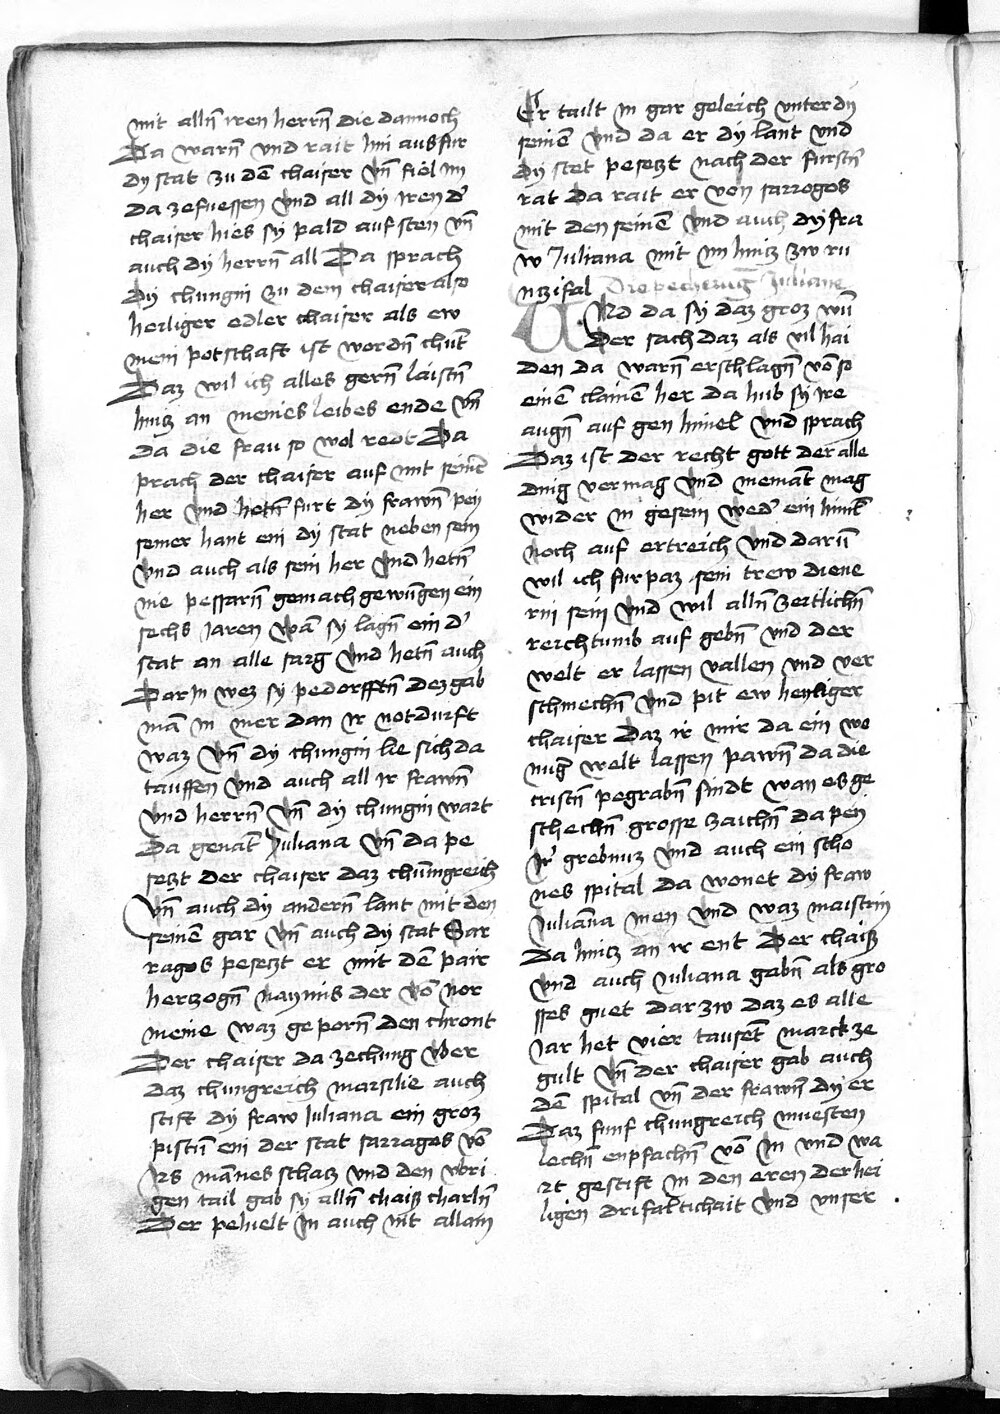 mit alln̄ iren herrn̄ die dannoch
Da warn̄ vnd rait hin ausfur
dy stat zu dē chaiser vn̄ fiel im
da ze fuessen vnd all dÿ iren d'
chaiser hies sÿ pald auf sten vn̄
auch dÿ herrn̄ all Da sprach
dÿ chungin zu dem chaiser also
heiliger edler chaiser als ew
mein potschaft ist wordn̄ chūt
Daz wil ich alles gern̄ laistn̄
hincz an meines leibes ende vn̄
da die frau so wol redt Da
prach der chaiser auf mit seinē
her vnd hetn̄ furt dÿ frawn̄ peÿ
seiner hant ein dÿ stat neben sein
vnd auch als sein her vnd hetn̄
nie pessarn̄ gemach gewūgen ein
sechs jaren wā sÿ lagn̄ ein d'
stat an alle sarg vnd hetn̄ auch
Dar in wez sÿ pedorfftn̄ dez gab
mā in mer dan ir notdurft
waz vn̄ dÿ chungin lie sich da
tauffen vnd auch all ir frawn̄
vnd herrn̄ vn̄ dÿ chungin wart
Da genāt Juliana vn̄ da pe
seczt der chaiser daz chūmgreich
vn̄ auch dÿ andern̄ lant mit den
seinē gar vn̄ auch dÿ stat Sar
ragos peseczt er mit dē pair
herczogn̄ naymis der vō nor
meine waz geporn̄ den chront
Der chaiser da ze chung vber
daz chungreich marsilie auch
stift dÿ fraw Juliana ein groz
pistūm ein der stat sarragos vō
irs mānes schacz vnd den vbri
gen tail gab sÿ alln̄ chaiser charln̄
Der pehielt in auch nit allain
Er tailt in gar geleich vnter dÿ
seinē vnd da er dÿ lant vnd
dÿ stet peseczt nach der furstn̄
rat da rait er von sarragos
mit den seinē vnd auch dÿ fra
w Juliana mit im hincz zw ru
nczifal Die pecherung Juliane
Vnd da sÿ daz groz wū
Der sach daz als vil hai
den da warn̄ erschlagn̄ vō so
einē clainē her da hub sÿ ire
augn̄ auf gen himel vnd sprach
Daz ist der recht gott der alle
ding vermag vnd niemāt mag
wider in gesein wed' ein himel
noch auf ertreich vnd darū
wil ich furpaz sein trew diene
rin sein vnd wil alln̄ zertlichn̄
reichtumb auf gebn̄ vnd der
welt er lassen vallen vnd ver
schmechn̄ vnd pit ew heÿliger
chaiser daz ir mir da ein we
nug welt lassen pawn̄ da die
cristn̄ pegrabn̄ sindt wan es ge
schechn̄ grosse zaichn̄ da peÿ
Ir grebnuz vnd auch ein scho
nes spital da wonet dÿ fraw
Juliana inen vnd waz maistrin
Da hincz an ir ent Der chaiser
vnd auch Juliana gabn̄ als gro
sses guet darzw daz es alle
Jar het vier tausēt marck ze
gult vn̄ der chaiser gab auch
dē spital vn̄ der frawn̄ dÿ er
Daz funf chungreich muesten
lechn̄ enpfachn̄ vō in vnd wa
rt gestift in den eren der hei
ligen drifaltichait vnd vnser